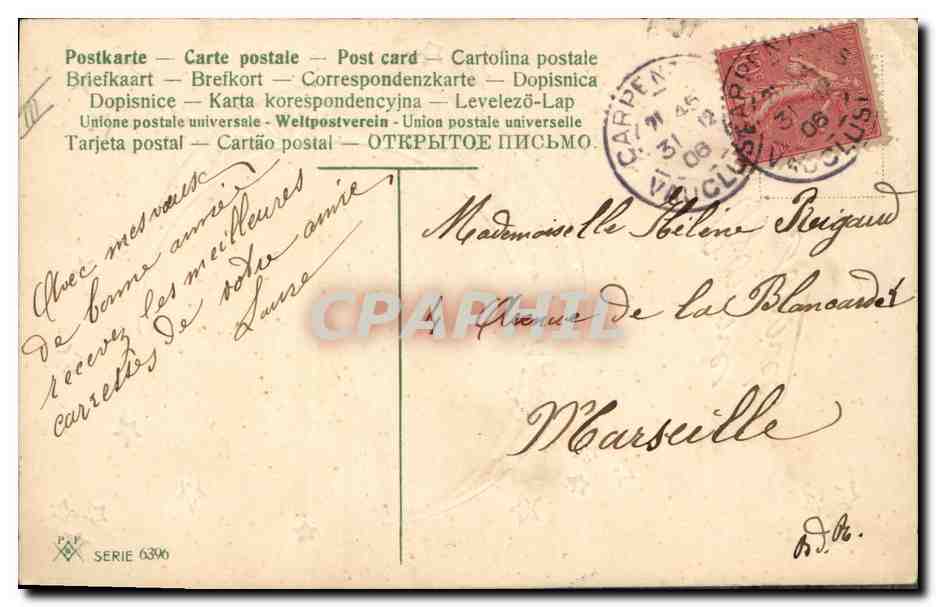 Postkarte — Carte postale — Post card — Cartolina postale
Briefkaart — Brefkort — Correspondenzkarte — Dopisnica
Dopisnice — Karta korespondencyjna — Levelező-Lap
Unione postale universale - Weltpostverein - Union postale universelle
Tarjeta postal — Cartão postal — ОТКРЫТОЕ ПИСЬМО.
CARPEN
21 45
31 12
06
VAUCLUSE
Avec mes vœux
de bonne année
recevez les meilleures
carresses de votre amie
Laure
Mademoiselle Hélène Reigaud
4 Avenue de la Blancarde
Marseille
B.d.R.
CPAPHIL
P P
SERIE 6396